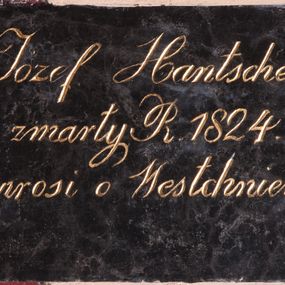 Józef Hantsche
zmarły R. 1824.
prosi o Westchnie